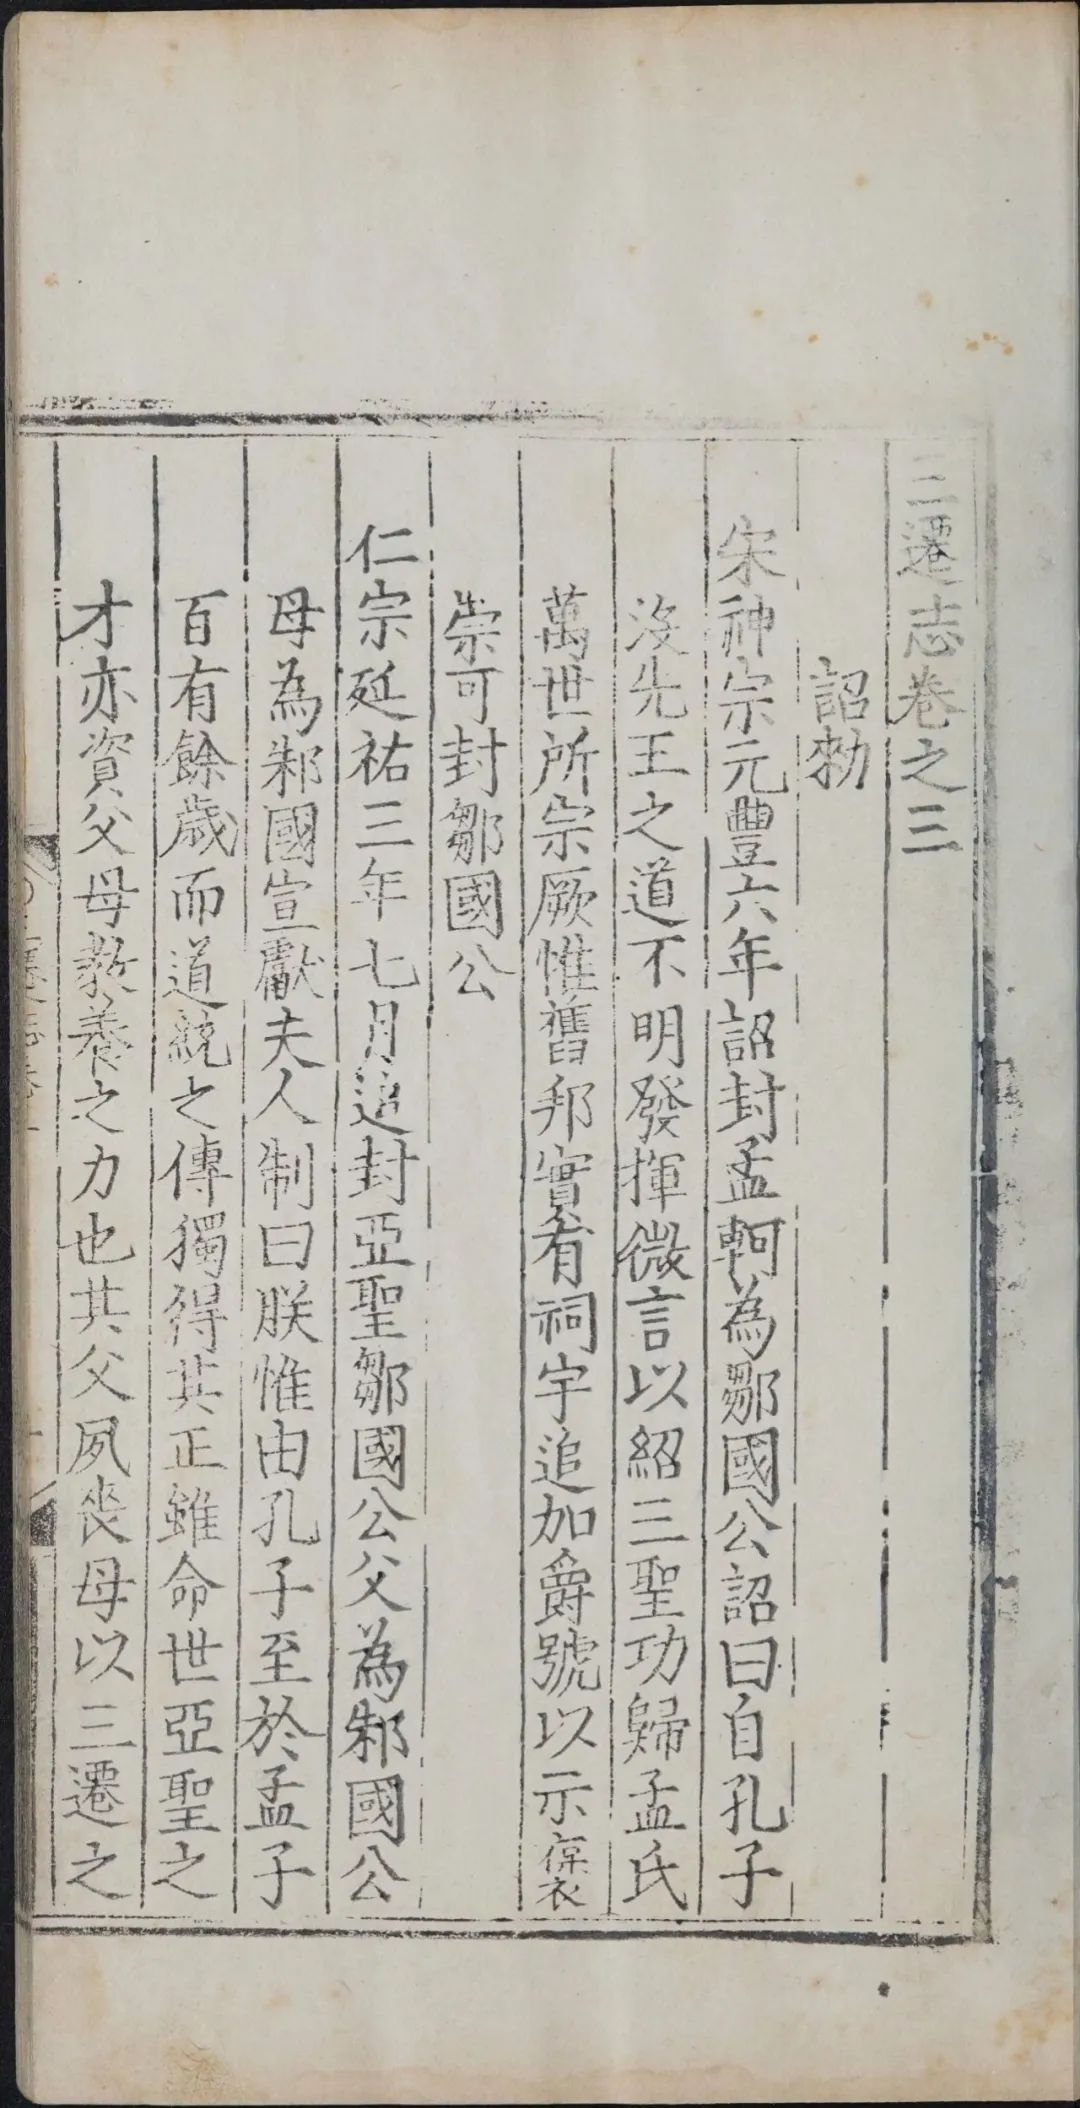 三遷志卷之三
詔勑
宋神宗元豐六年詔封孟軻為鄒國公詔曰自孔子
沒先王之道不明發揮微言以紹三聖功歸孟氏
萬世所宗厥惟舊邦實有祠宇追加爵號以示褒
崇可封鄒國公
仁宗延祐三年七月追封亞聖鄒國公父為邾國公
母為邾國宣獻夫人制曰朕惟由孔子至於孟子
百有餘歲而道統之傳獨得其正雖命世亞聖之
才亦資父母教養之力也其父夙喪母以三遷之